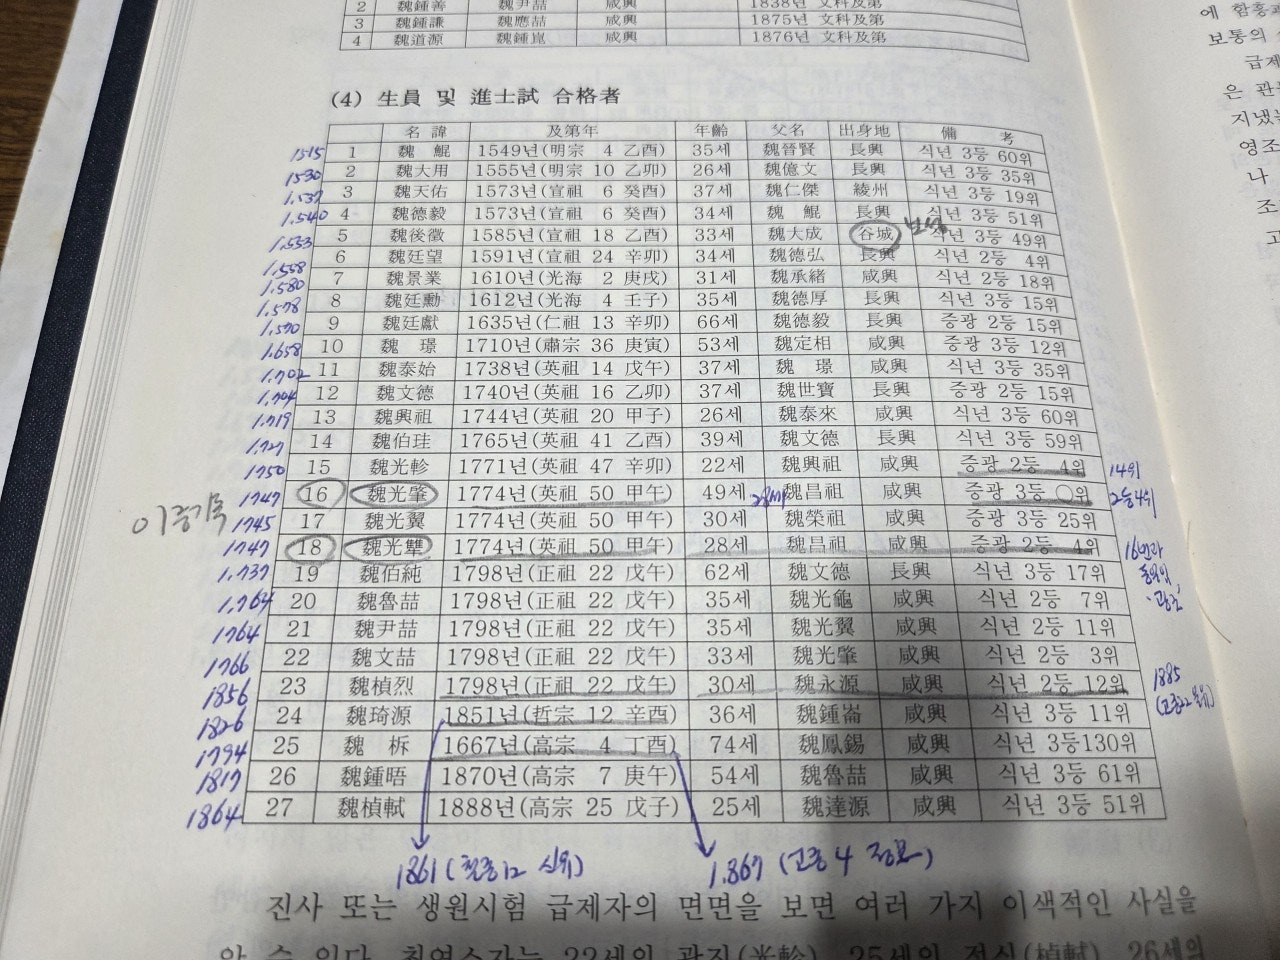 2 魏鍾善 魏尹喆 咸興 1838년 文科及第
3 魏鍾謙 魏應喆 咸興 1875년 文科及第
4 魏道源 魏鍾崑 咸興 1876년 文科及第
(4) 生員 및 進士試 合格者
名 諱 及第年 年齡 父名 出身地 備 考
1515 1 魏 鯤 1549년(明宗 4 乙酉) 35세 魏晉賢 長興 식년 3등 60위
1530 2 魏大用 1555년(明宗 10 乙卯) 26세 魏億文 長興 식년 3등 35위
1.537 3 魏天佑 1573년(宣祖 6 癸酉) 37세 魏仁傑 綾州 식년 3등 19위
1.540 4 魏德毅 1573년(宣祖 6 癸酉) 34세 魏 鯤 長興 식년 3등 51위
1.553 5 魏後徵 1585년(宣祖 18 乙酉) 33세 魏大成 谷城 보성 식년 3등 49위
1.558 6 魏廷望 1591년(宣祖 24 辛卯) 34세 魏德弘 長興 식년 2등 4위
1.580 7 魏景業 1610년(光海 2 庚戌) 31세 魏承緖 咸興 식년 2등 18위
1.578 8 魏廷勳 1612년(光海 4 壬子) 35세 魏德厚 長興 식년 3등 15위
1.570 9 魏廷獻 1635년(仁祖 13 辛卯) 66세 魏德毅 長興 증광 2등 15위
1.658 10 魏 璟 1710년(肅宗 36 庚寅) 53세 魏定相 咸興 증광 3등 12위
1.702 11 魏泰始 1738년(英祖 14 戊午) 37세 魏 璟 咸興 식년 3등 35위
1.704 12 魏文德 1740년(英祖 16 乙卯) 37세 魏世寶 長興 증광 2등 15위
1.719 13 魏興祖 1744년(英祖 20 甲子) 26세 魏泰來 咸興 식년 3등 60위
1.727 14 魏伯珪 1765년(英祖 41 乙酉) 39세 魏文德 長興 식년 3등 59위
1750 15 魏光軫 1771년(英祖 47 辛卯) 22세 魏興祖 咸興 증광 2등 4위 14위
이중기록 1747 16 魏光肇 1774년(英祖 50 甲午) 49세 28세 魏昌祖 咸興 증광 3등 ○위 2등4위
1745 17 魏光翼 1774년(英祖 50 甲午) 30세 魏榮祖 咸興 증광 3등 25위
1747 18 魏光犨 1774년(英祖 50 甲午) 28세 魏昌祖 咸興 증광 2등 4위 16번과
1.737 19 魏伯純 1798년(正祖 22 戊午) 62세 魏文德 長興 식년 3등 17위 동일인
1.764 20 魏魯喆 1798년(正祖 22 戊午) 35세 魏光龜 咸興 식년 2등 7위 광조
1764 21 魏尹喆 1798년(正祖 22 戊午) 35세 魏光翼 咸興 식년 2등 11위
1766 22 魏文喆 1798년(正祖 22 戊午) 33세 魏光肇 咸興 식년 2등 3위
1856 23 魏楨烈 1798년(正祖 22 戊午) 30세 魏永源 咸興 식년 2등 12위 1885
1826 24 魏琦源 1851년(哲宗 12 辛酉) 36세 魏鍾崙 咸興 식년 3등 11위
1794 25 魏 柝 1667년(高宗 4 丁酉) 74세 魏鳳錫 咸興 식년 3등130위
1817 26 魏鍾晤 1870년(高宗 7 庚午) 54세 魏魯喆 咸興 식년 3등 61위
1864 27 魏楨軾 1888년(高宗 25 戊子) 25세 魏達源 咸興 식년 3등 51위
1861 (철종12 신유) 1.867 (고종 4 정묘)
진사 또는 생원시험 급제자의 면면을 보면 여러 가지 이색적인 사실을
알 수 있다. 최연소자는 22세의 광진(光軫), 25세의 정식(楨軾), 26세의
에 함흥
보통의
급제
은 관
지냈
영조
나
조
고